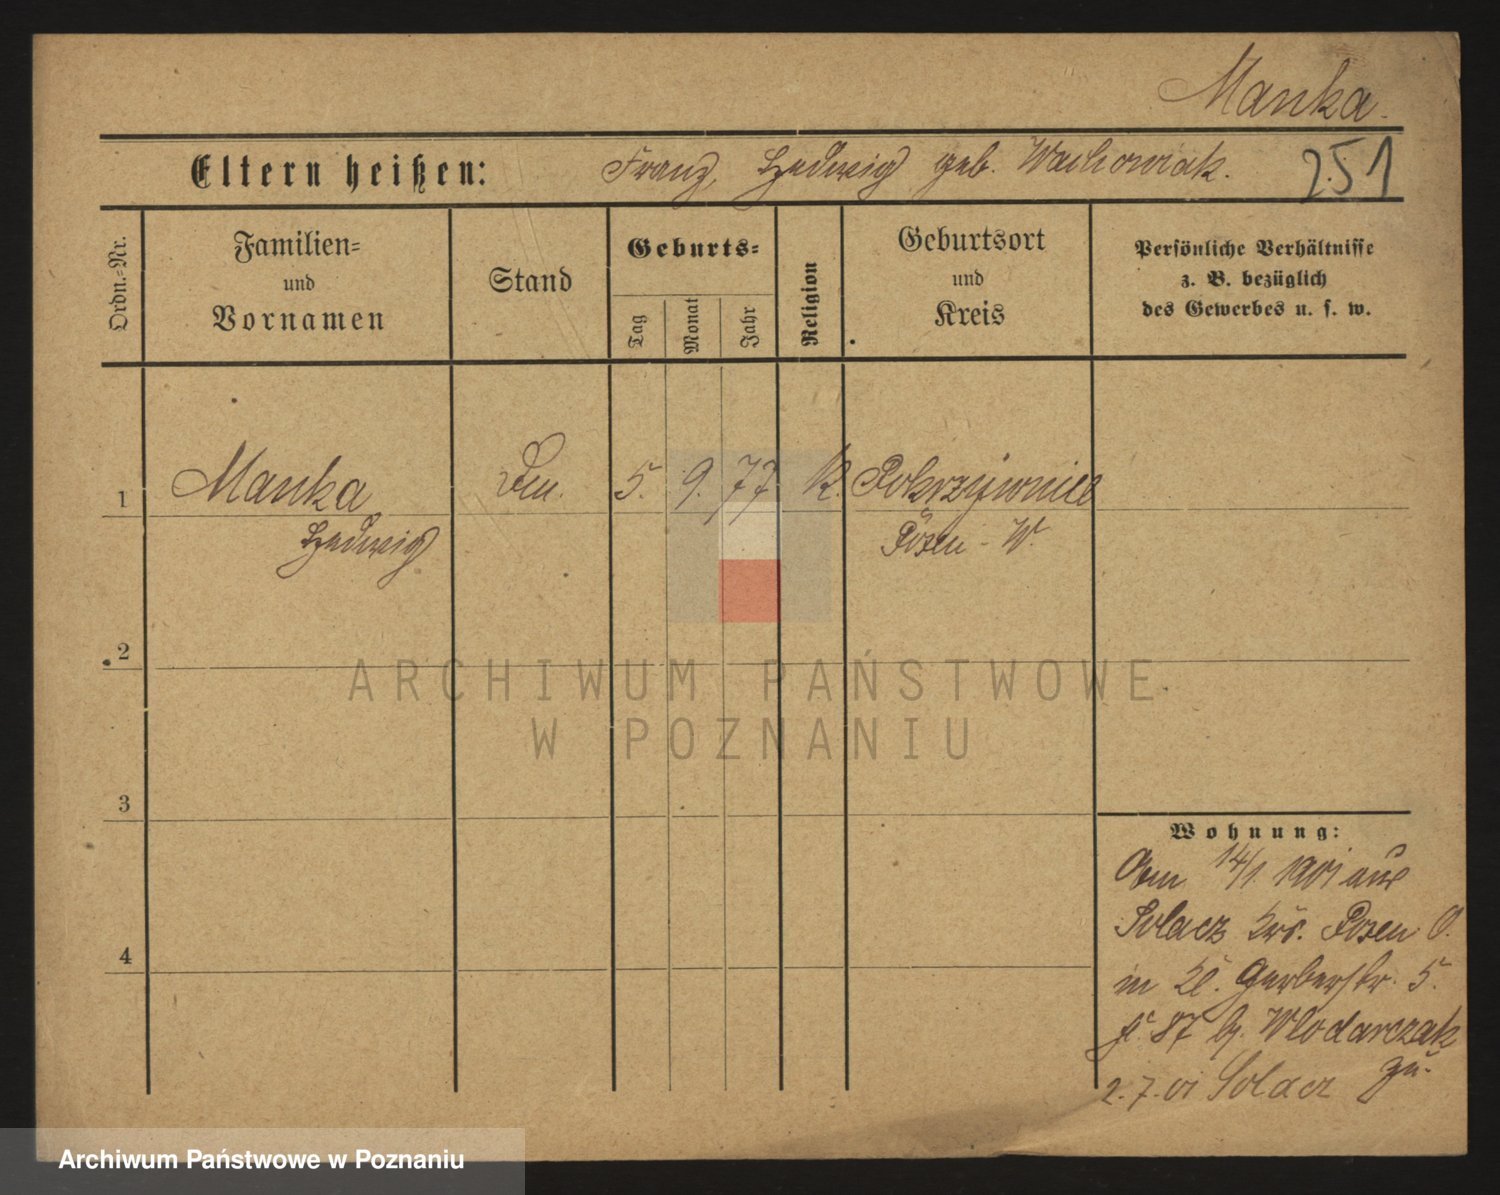 Manka.
Eltern heißen: Franz, Hedwig geb. Wachowiak. 251
Ordn.=Nr.
Familien=
und
Vornamen
Stand
Geburts=
Tag
Monat
Jahr
Religion
Geburtsort
und
Kreis
Persönliche Verhältnisse
z. B. bezüglich
des Gewerbes u. s. w.
1 Manka 5. 9. 77 K. Pokrzywnice
Hedwig Posen - W.
2
ARCHIWUM PAŃSTWOWE
W POZNANIU
3
Wohnung:
14/1. 1901 aus
Solacz Krs. Posen O.
4
in Kl. Gerberstr. 5.
87 b. Wlodarczak
zu.
2. 7. 01 Solacz
Archiwum Państwowe w Poznaniu